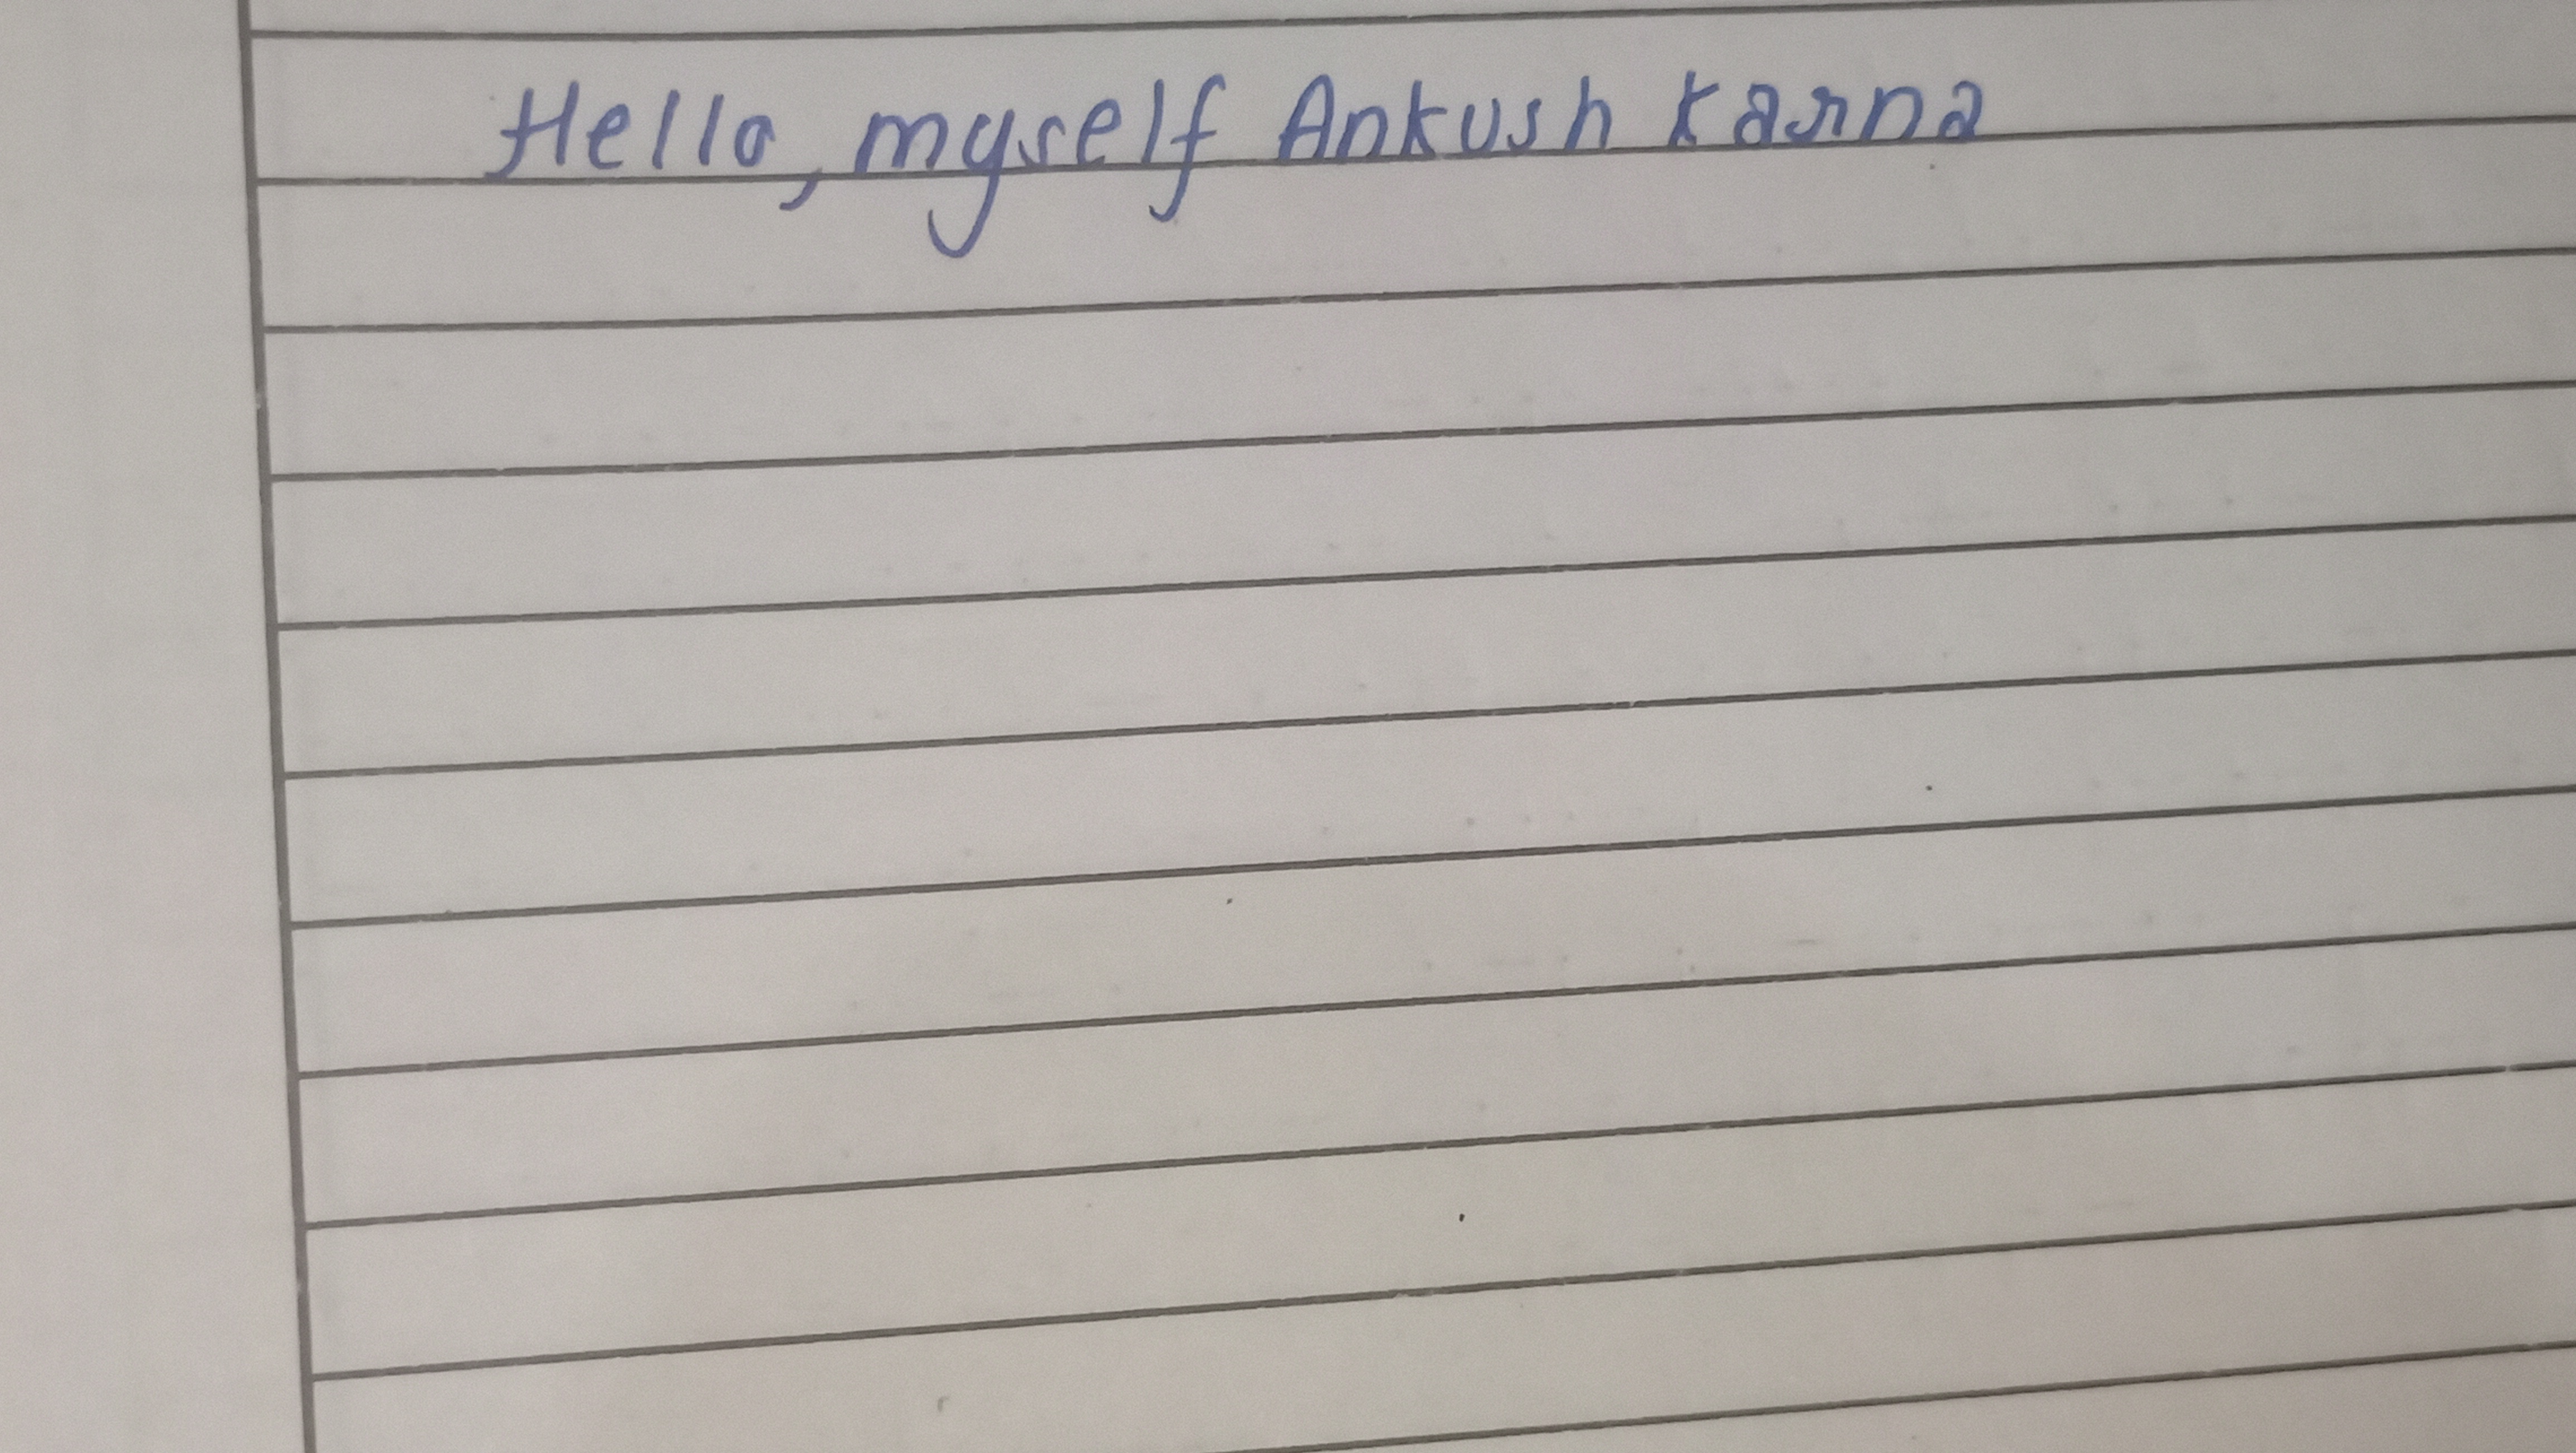 Hello, myself Ankush Karna